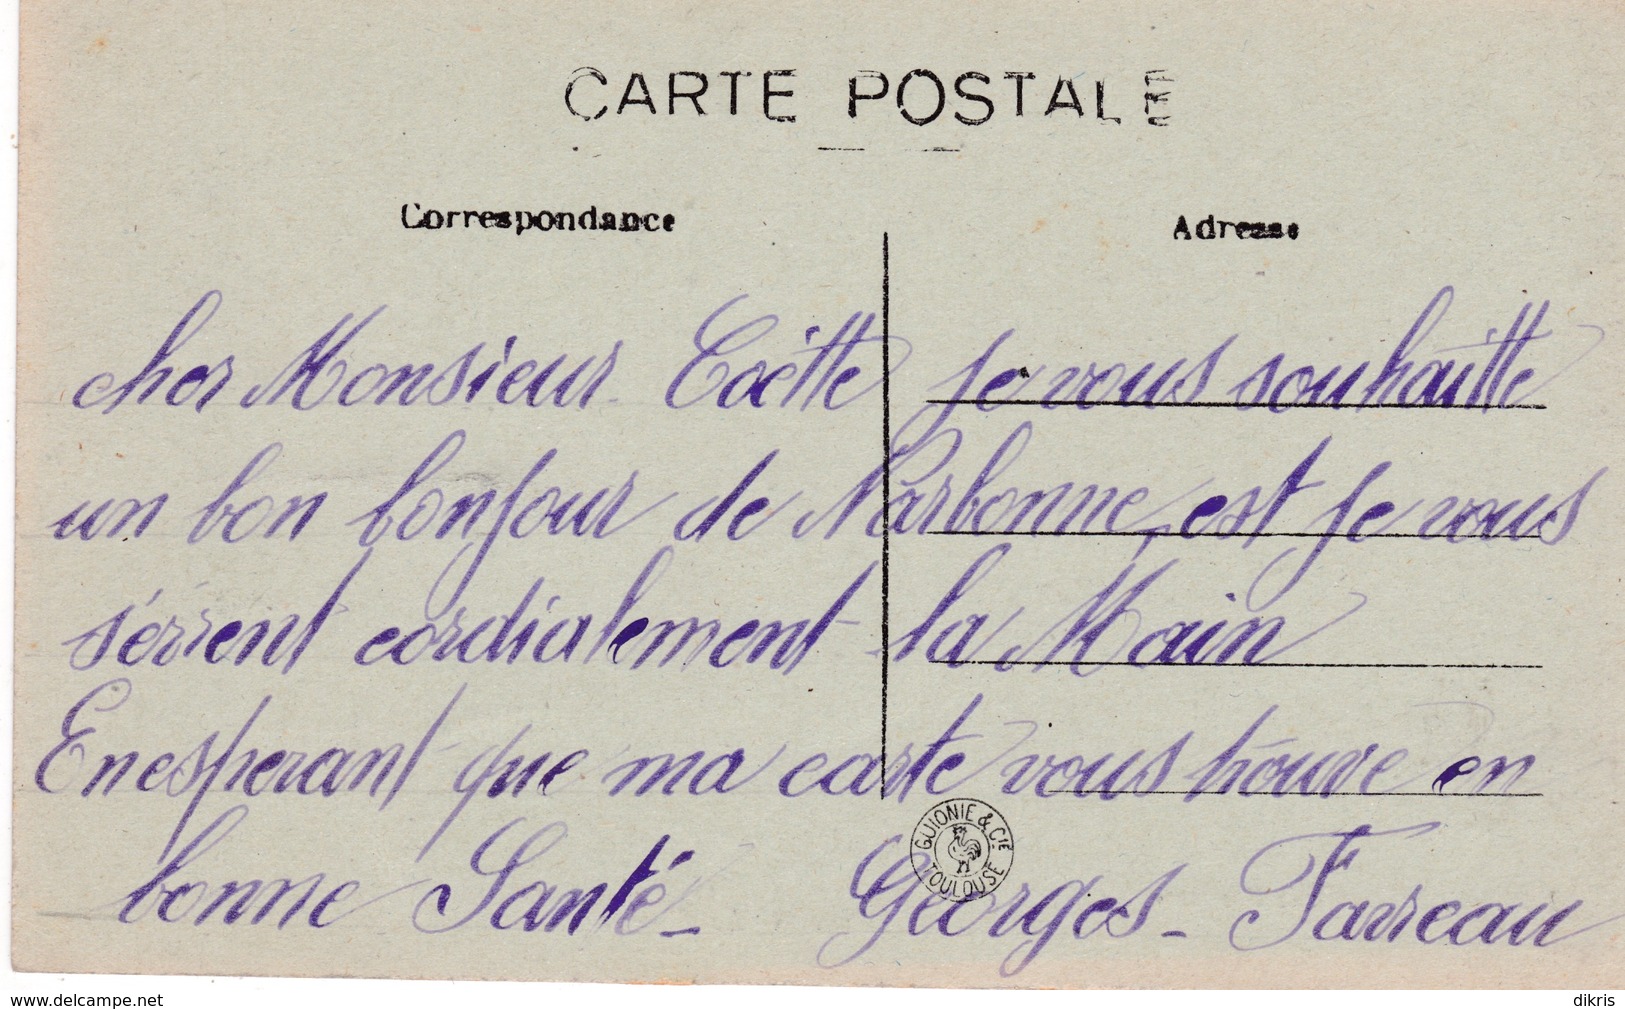 CARTE POSTALE
Correspondance
Adresse
cher Monsieur je vous souhaitte
un bon bonjour de Narbonne, est je vous
sérrent cordialement la Main
En esperant que ma carte vous trouve en
bonne Santé - Georges - Farreau
GUIONIE & CIE
TOULOUSE
www.delcampe.net
dikris